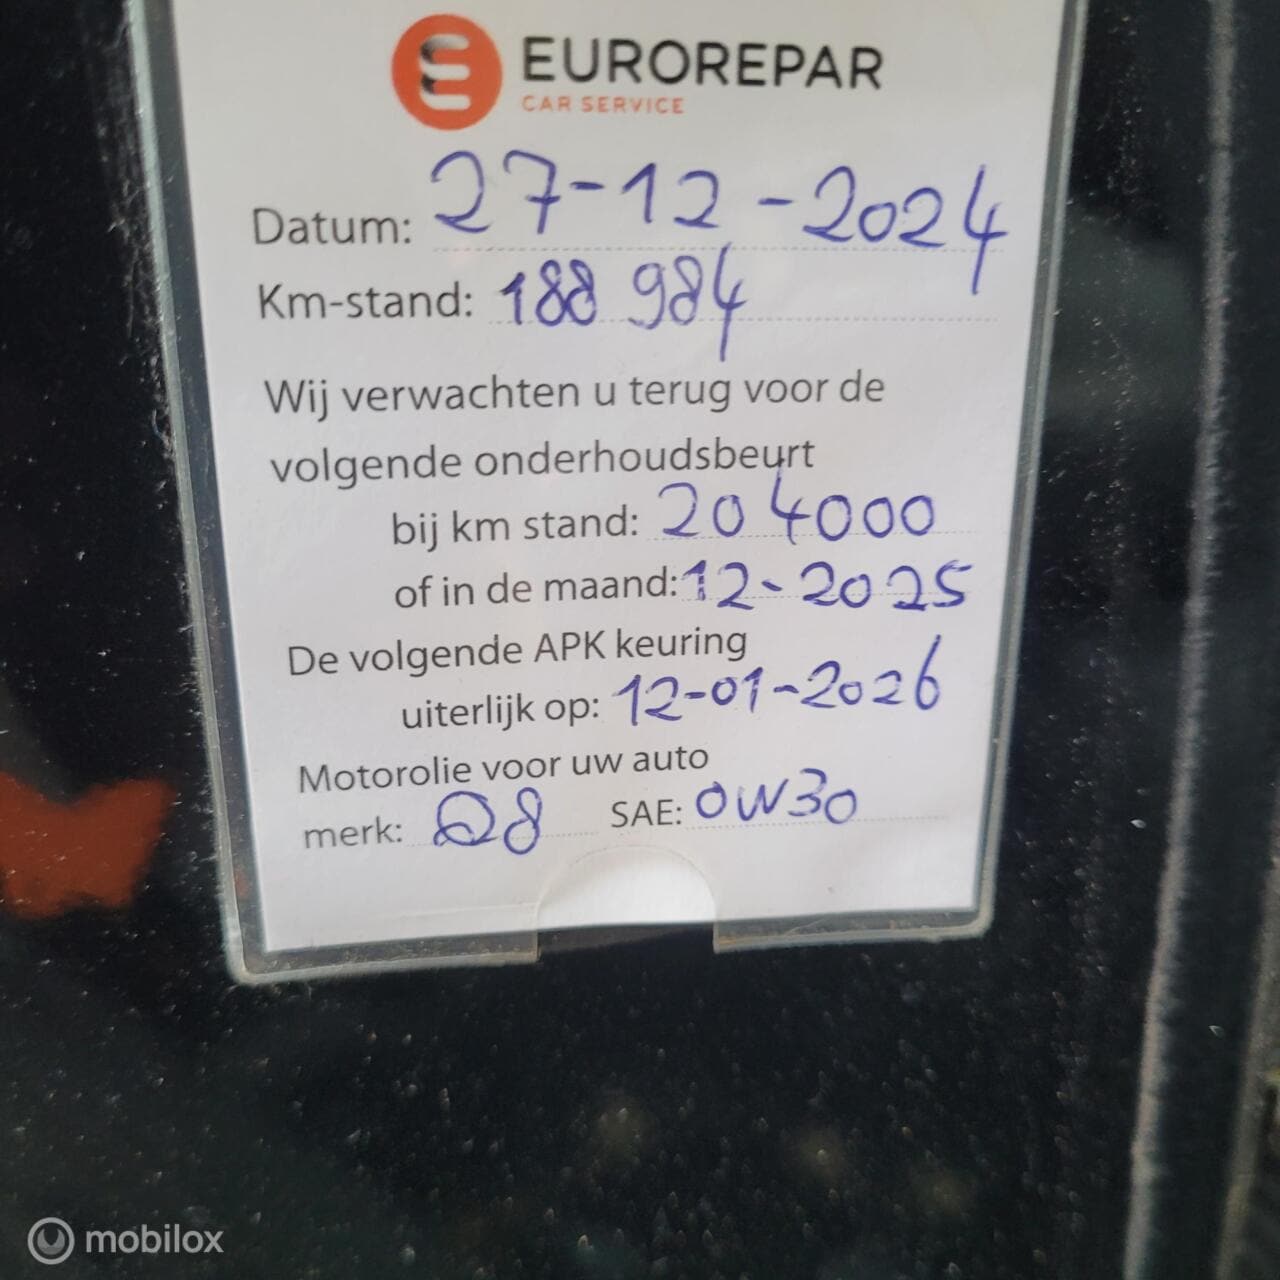 EUROREPAR
CAR SERVICE
Datum: 27-12-2024
Km-stand: 188 984
Wij verwachten u terug voor de
volgende onderhoudsbeurt
bij km stand: 204000
of in de maand: 12-2025
De volgende APK keuring
uiterlijk op: 12-01-2026
Motorolie voor uw auto
merk: Q8 SAE: 0W30
mobilox